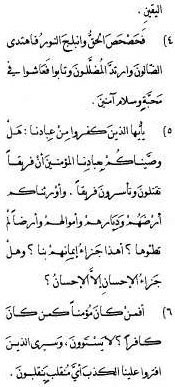 اليقين.
٤) فَحَصْحَصَ الحَقُّ وانبلجَ النورُ فاهتدى
الضالّونَ وارتدَّ المضلَّلونَ وتابوا فعاشوا في
محبّةٍ وسلامٍ آمنينَ.
٥) يأيها الذينَ كفروا مِنْ عبادِنا: هَلْ
وصّيناكُمْ بعِبادِنا المؤمنينَ أنْ فريقاً
تقتلونَ وتأسرونَ فريقاً. وأورثناكم
أرضَهُمْ وديارَهم وأموالَهم وأرضاً لم
تطئوها؟ أهذا جزاءُ إيمانِهم بِنا؟ وهل
جزاءُ الإحسانِ إلاَّ الإحسانُ؟
٦) أفمنْ كانَ مؤمناً كمن كانَ
كافراً؟ لا يستوونَ، وسيرى الذين
افتروا علينا الكذبَ أيَّ منقلبٍ ينقلبونَ.